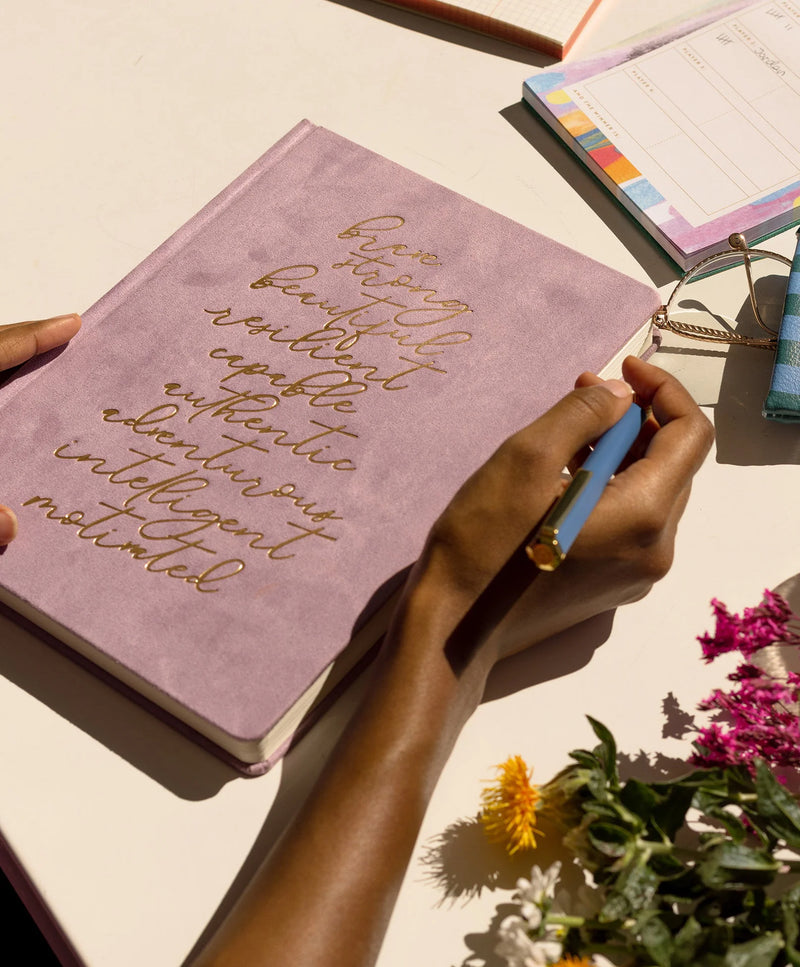 brave
strong
beautiful
resilient
capable
authentic
adventurous
intelligent
motivated
PLAYER 1:
PLAYER 2:
Jordan
PLAYER 3:
PLAYER 4:
AND THE WINNER IS: